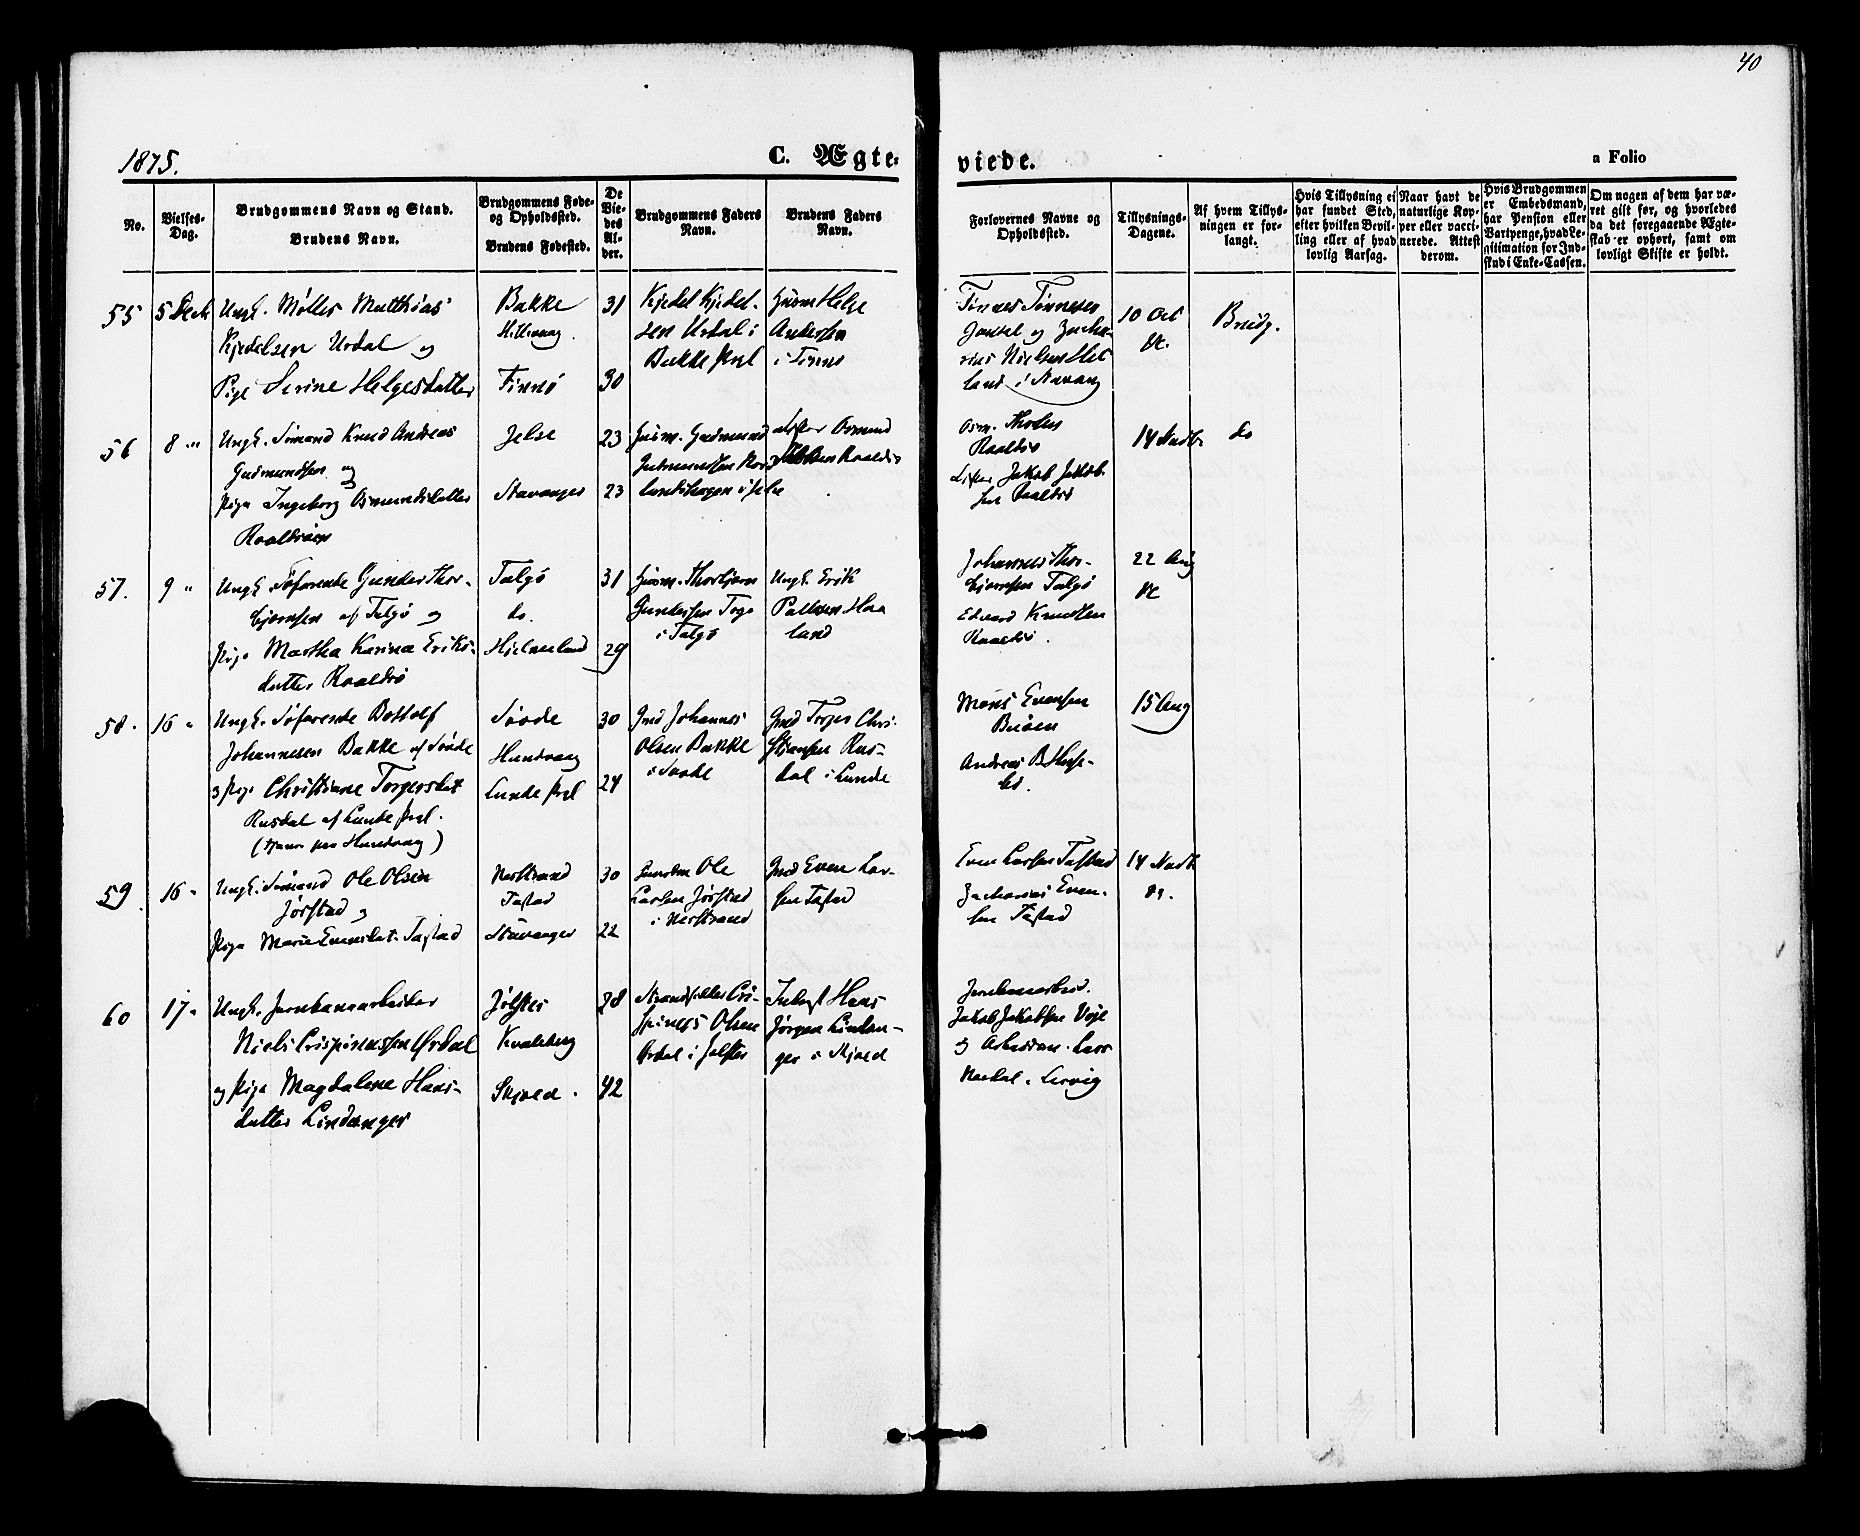 40
1875.
C. Ægte-
viede.
a Folio
No.
Vielses-
Dag.
Brudgommens Navn og Stand.
Brudens Navn.
Brudgommens Føde-
og Opholdssted.
Brudens Fødested.
De
Vie-
des
Al-
der.
Brudgommens Faders
Navn.
Brudens Faders
Navn.
Forlovernes Navne og
Opholdssted.
Tillysnings-
Dagene.
Af hvem Tillys-
ningen er for-
langt.
Hvis Tillysning ei
har fundet Sted,
efter hvilken Bevil-
ling eller af hvad
lovlig Aarsag.
Naar havt de
naturlige Kop-
per eller vacci-
nerede. Attest
derom.
Hvis Brudgommen
er Embedsmand,
har Pension eller
Vartpenge, hvad Le-
gitimation for Ind-
skud i Enke-Cassen.
Om nogen af dem har væ-
ret gift før, og hvorledes
da det foregaaende Ægte-
skab er ophørt, samt om
lovligt Skifte er holdt.
55
5 Decb
Ungk. Møller Matthias
Kjedelsen Urdal og
Pige Serine Helgesdatter
Bakke
Hillevaag
Finnø
31
30
Kjedel Kjedel-
sen Urdal i
Bakke Prgl
Husm Helge
Andersen
i Finnø
Tønnes Tønnesen
og Zacha-
rias Nielsen Het-
land i Stavang
10 Oct
Brudg.
56
8 "
Ungk. Sømand Knud Andreas
Gudmundsen og
Pige Ingeborg Osmundsdatter
Raaldsøen
Jelse
Stavanger
23
23
Husm. Gudmund
Gudmundsen
i Jelse
Osmund
Raaldsø
Osm.
Raaldsø
Jakob Jakob-
sen Raaldsø
14 Novb.
do
57.
9 "
Ungk. Søfarende Gunder Thor-
bjørnsen af Talgø og
Pige Martha Karina Eriks-
datter Raaldsø
Talgø
do.
Hjelmeland
31
29
Husm. Thorbjørn
Gundersen
i Talgø
Ungk. Erik
Haa
land
Johannes Thor-
bjørnsen Talgø
Edvard Knudsen
Raaldsø.
22 Aug
58.
16 "
Ungk. Søfarende Bottolf
Johannesen Bakke af Sovde
Pige Christiane Torgersdat
Rusdal af Lunde Prgl.
(tjener paa Hundvaag)
Sovde
Hundvaag
Lunde Prgl
30
24
Gmd Johannes
Olsen Bakke
i Sovde
Gmd Torger Chri-
stiansen Rus-
dal i Lunde
Mons Evensen
Buøen
Andreas B Huse-
bø.
15 Aug
59.
16 "
Ungk. Sømand Ole Olsen
Jørstad og
Pige Marie Evensdat. Tastad
Nerstrand
Tastad
Stavanger
30
22
Ole
Larsen Jørstad
i Nerstrand
Gmd Even Lar-
sen Tastad
Even Larsen Tastad
Zacharias Even-
sen Tastad
14 Novb
60
17 "
Ungk. Jernbanearbeider
Niels Crispinussen Ørdal
og Pige Magdalene Hans-
datter Lindanger
Jølster
Kvaleberg
Skjold.
28
42
Strandsidder Cri-
spinus Olsen
Ørdal i Jølster
Hans
Jørgen Lindan-
ger i Skjold
Jernbanearbeid.
Jakob Jakobsen Veje
og Arbeidsm. Lars